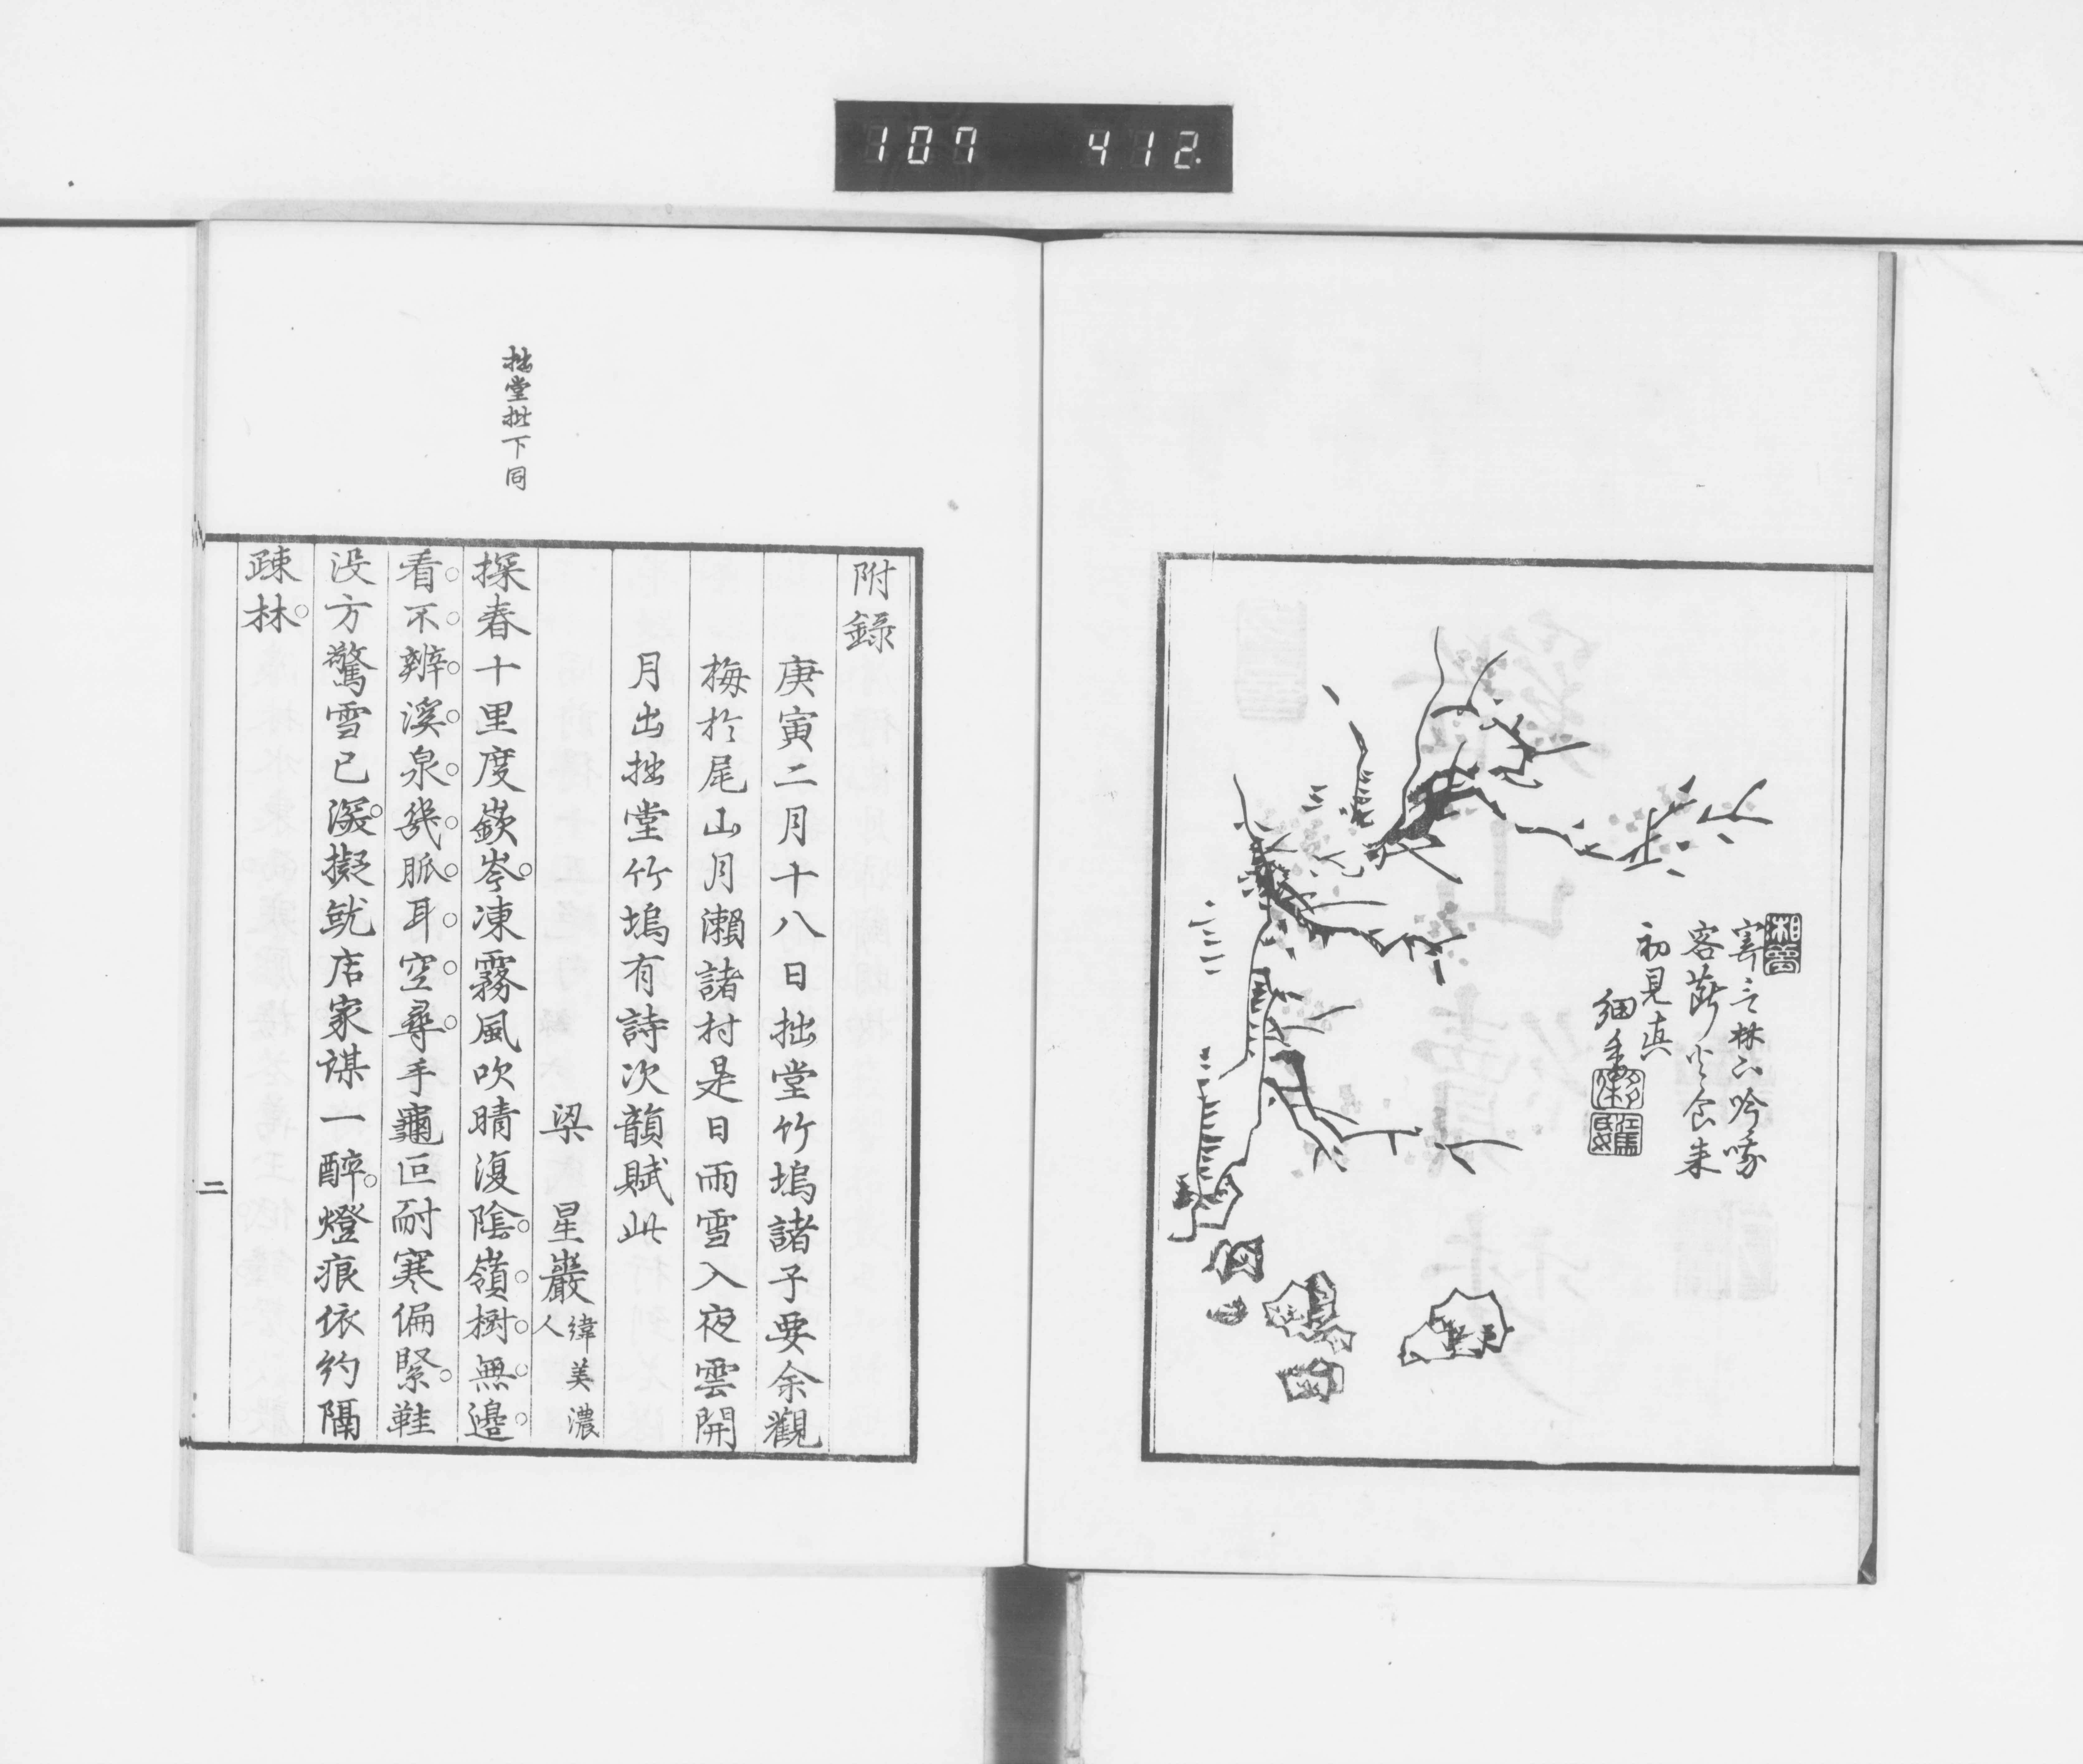 107 412
初見真
細香
拙堂批下同
附錄
庚寅二月十八日拙堂竹塢諸子要余觀
梅於尾山月瀨諸村是日雨雪入夜雲開
月出拙堂竹塢有詩次韻賦此
梁星巖緯美濃人
探春十里度嶔岑凍霧風吹晴復陰嶺樹無邊
看不辨溪泉幾脈耳空尋手龜叵耐寒偏緊鞋
没方驚雪已深擬就店家謀一醉燈痕依約隔
疎林
二